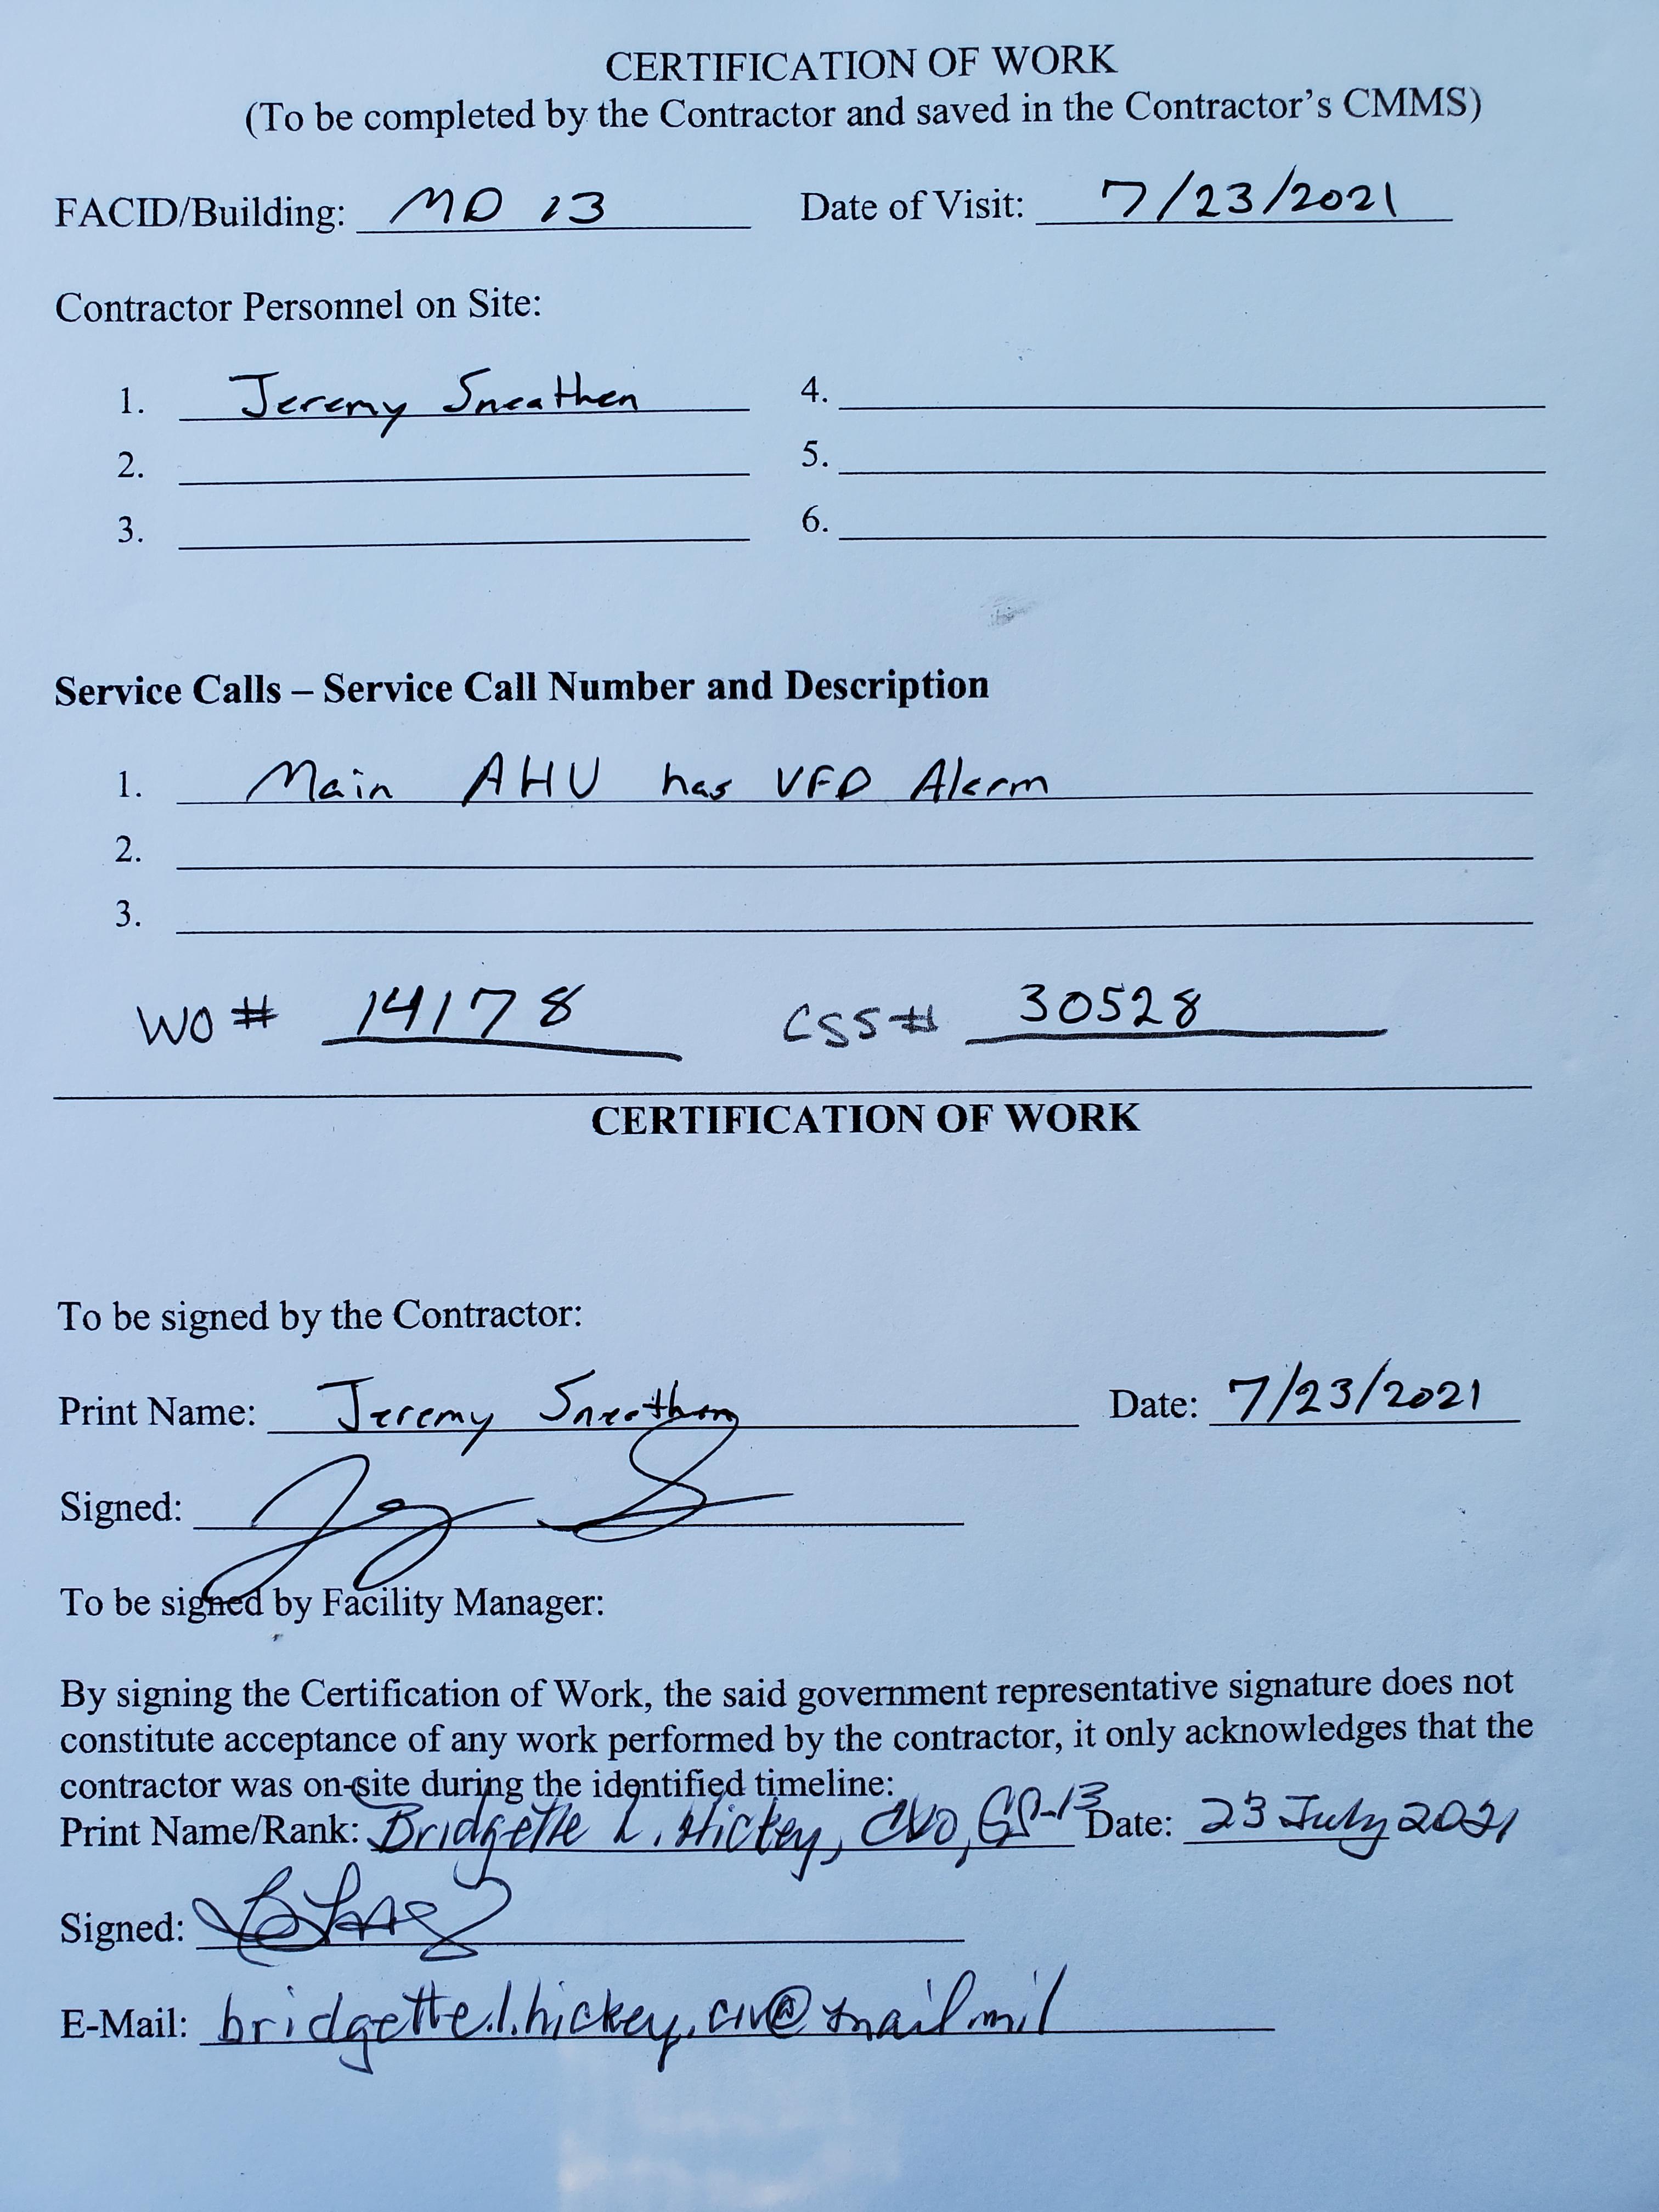 CERTIFICATION OF WORK
(To be completed by the Contractor and saved in the Contractor's CMMS)
FACID/Building: MD 13 Date of Visit: 7/23/2021
Contractor Personnel on Site:
1. Jeremy Sneathen 4.
2. 5.
3. 6.
Service Calls – Service Call Number and Description
1. Main AHU has VFD Alarm
2.
3.
WO # 14178 CSS# 30528
CERTIFICATION OF WORK
To be signed by the Contractor:
Print Name: Jeremy Sneathen Date: 7/23/2021
Signed:
To be signed by Facility Manager:
By signing the Certification of Work, the said government representative signature does not
constitute acceptance of any work performed by the contractor, it only acknowledges that the
contractor was on-site during the identified timeline:
Print Name/Rank: Bridgette L. Hickey, GS-13 Date: 23 July 2021
Signed:
E-Mail: bridgette.l.hickey.civ@mail.mil